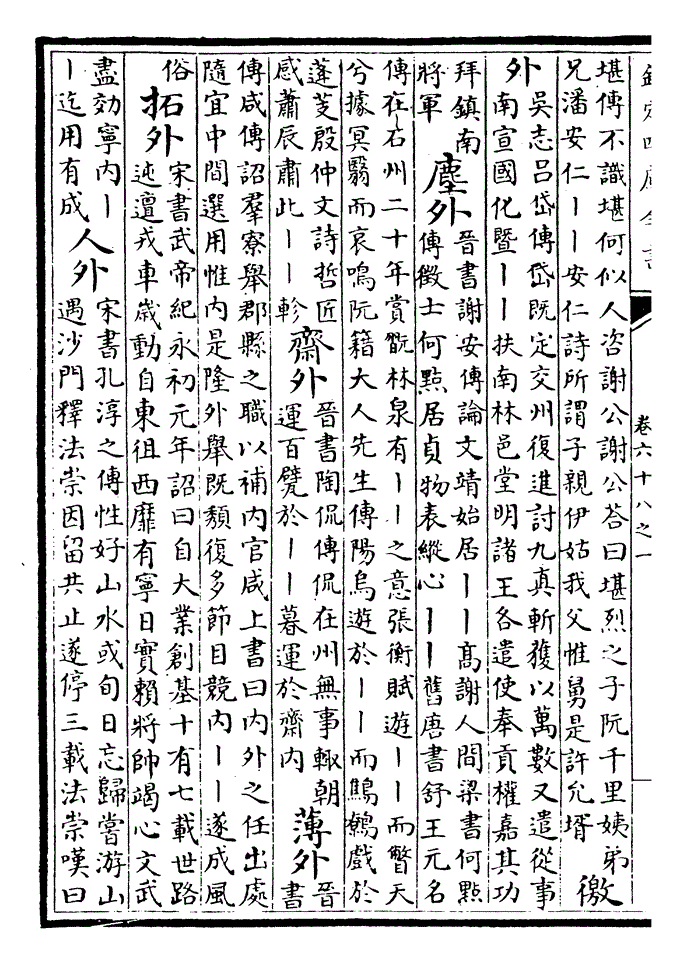 欽定四庫全書
卷六十八之一
堪傳不識堪何似人咨謝公謝公荅曰堪烈之子阮千里姨弟
兄潘安仁丨丨安仁詩所謂子親伊姑我父惟舅是許允壻
徼外
吳志吕岱傳岱既定交州復進討九真斬獲以萬數又遣從事
南宣國化暨丨丨扶南林邑堂明諸王各遣使奉貢權嘉其功
拜鎮南
將軍
塵外
晉書謝安傳論文靖始居丨丨高謝人間梁書何㸃
傳徵士何㸃居貞物表縱心丨丨舊唐書舒王元名
傳在石州二十年賞翫林泉有丨丨之意張衡賦遊丨丨而瞥天
兮據冥翳而哀鳴阮籍大人先生傳陽烏遊於丨丨而鷦鷯戲於
蓬芰殷仲文詩哲匠
感蕭辰肅此丨丨軫
齋外
晉書陶侃傳侃在州無事輒朝
運百甓於丨丨暮運於齋内
薄外
晉
書
傳咸傳詔羣寮舉郡縣之職以補内官咸上書曰内外之任出處
隨宜中間選用惟内是隆外舉既頽復多節目競内丨丨遂成風
俗
拓外
宋書武帝紀永初元年詔曰自大業創基十有七載世路
迍邅戎車歲動自東徂西靡有寧日實賴將帥竭心文武
盡効寧内丨
丨迄用有成
人外
宋書孔淳之傳性好山水或旬日忘歸嘗游山
遇沙門釋法崇因留共止遂停三載法崇嘆曰